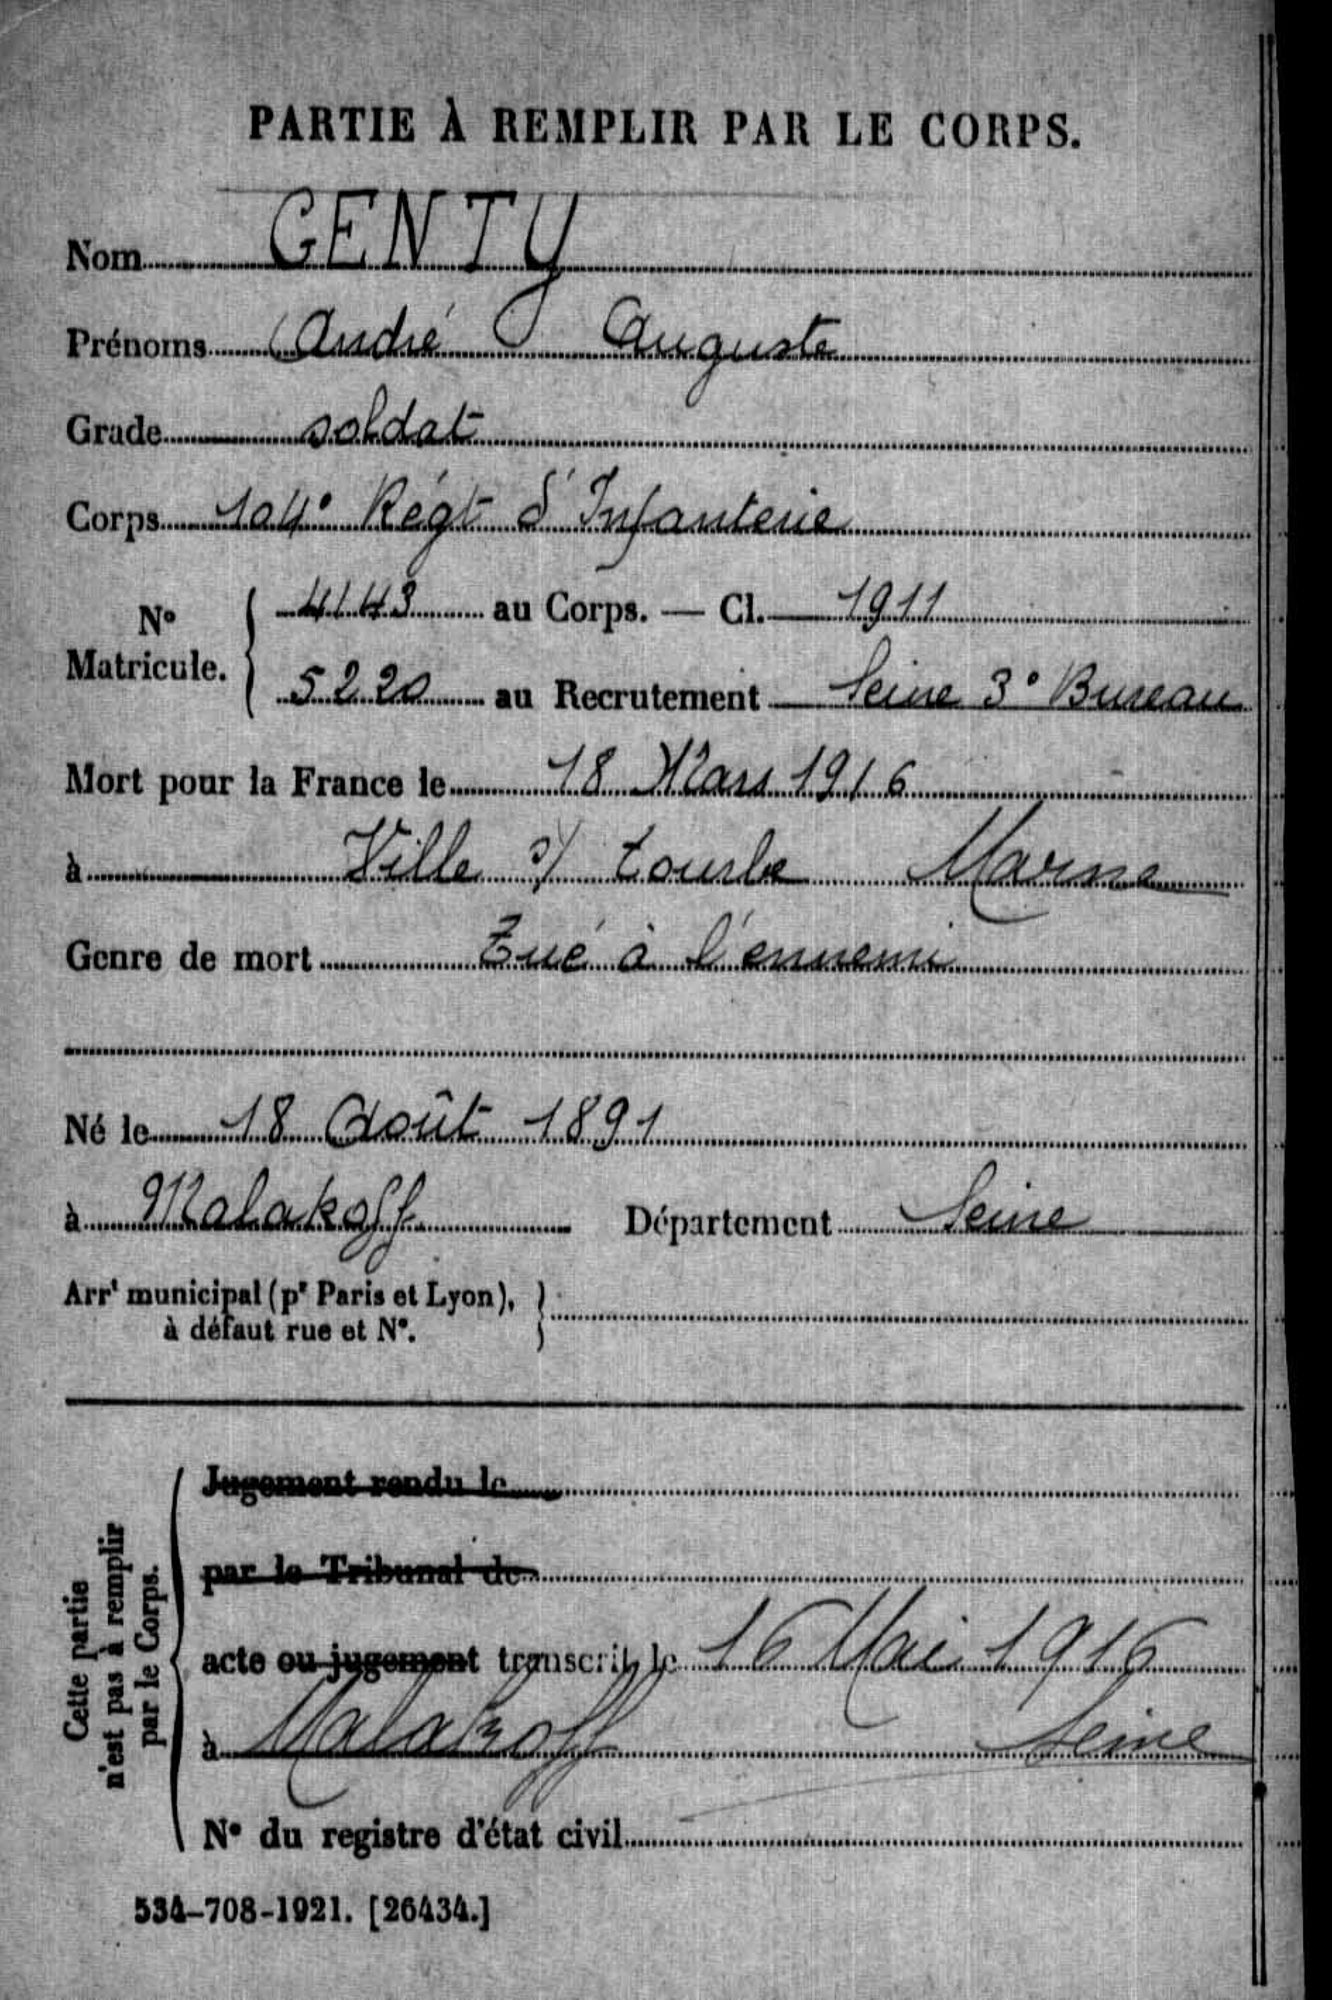 PARTIE À REMPLIR PAR LE CORPS.
Nom GENTY
Prénoms André Auguste
Grade soldat
Corps 104e Régt d'Infanterie
No Matricule. 4143 au Corps. — Cl. 1911
5220 au Recrutement Seine 3e Bureau
Mort pour la France le 18 Mars 1916
à Ville s/ Tourbe Marne
Genre de mort Tué à l'ennemi
Né le 18 Août 1891
à Malakoff Département Seine
Arrt municipal (pr Paris et Lyon),
à défaut rue et No.
Cette partie
n'est pas à remplir
par le Corps.
Jugement rendu le
par le Tribunal de
acte ou jugement transcrit le 16 Mai 1916
à Malakoff Seine
No du registre d'état civil
534-708-1921. [26434.]